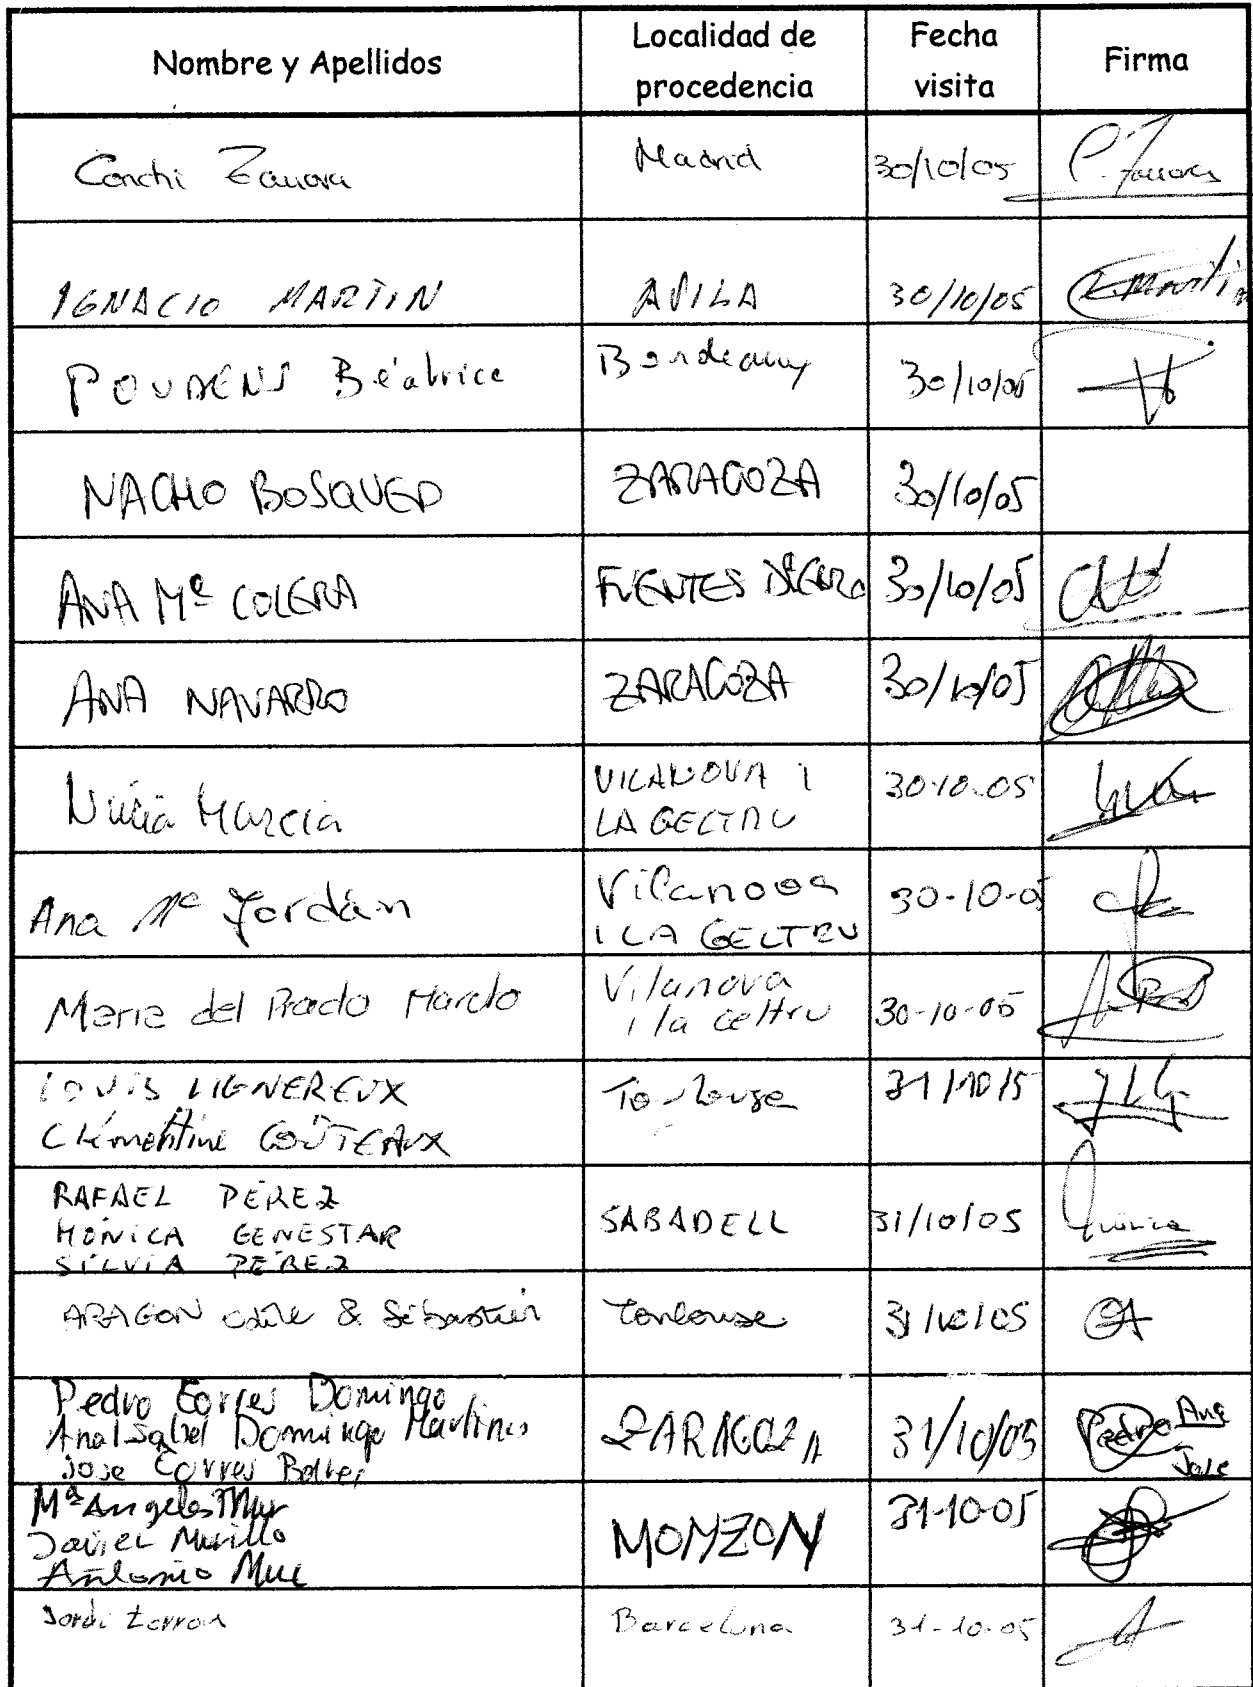 Nombre y Apellidos
Localidad de
procedencia
Fecha
visita
Firma
Conchi
Madrid
30/10/05
IGNACIO MARTIN
AVILA
30/10/05
POUDENS Béatrice
Bordeaux
30/10/05
NACHO BOSQUED
ZARAGOZA
30/10/05
ANA Mª COLERA
FUENTES D'EBRO
30/10/05
ANA NAVARRO
ZARAGOZA
30/10/05
Núria Murcia
VILANOVA i
LA GELTRU
30-10-05
Ana Mª Jordán
Vilanova
i LA GELTRU
30-10-05
Maria del Prado
Vilanova
i la Geltru
30-10-05
LOUIS LIGNEREUX
Clémentine COÛTEAUX
Toulouse
31/10/5
RAFAEL PÉREZ
MÓNICA GENESTAR
SÍLVIA PÉREZ
SABADELL
31/10/05
ARAGON Odile & Sébastien
Toulouse
31/10/05
Pedro Torres Domingo
Ana Isabel Domingo Martinez
Jose Torres
ZARAGOZA
31/10/05
Pedro
Ana
Jose
Mª Angeles Mur
Javier Murillo
Antonio Mur
MONZON
31-10-05
Jordi
Barcelona
31-10-05